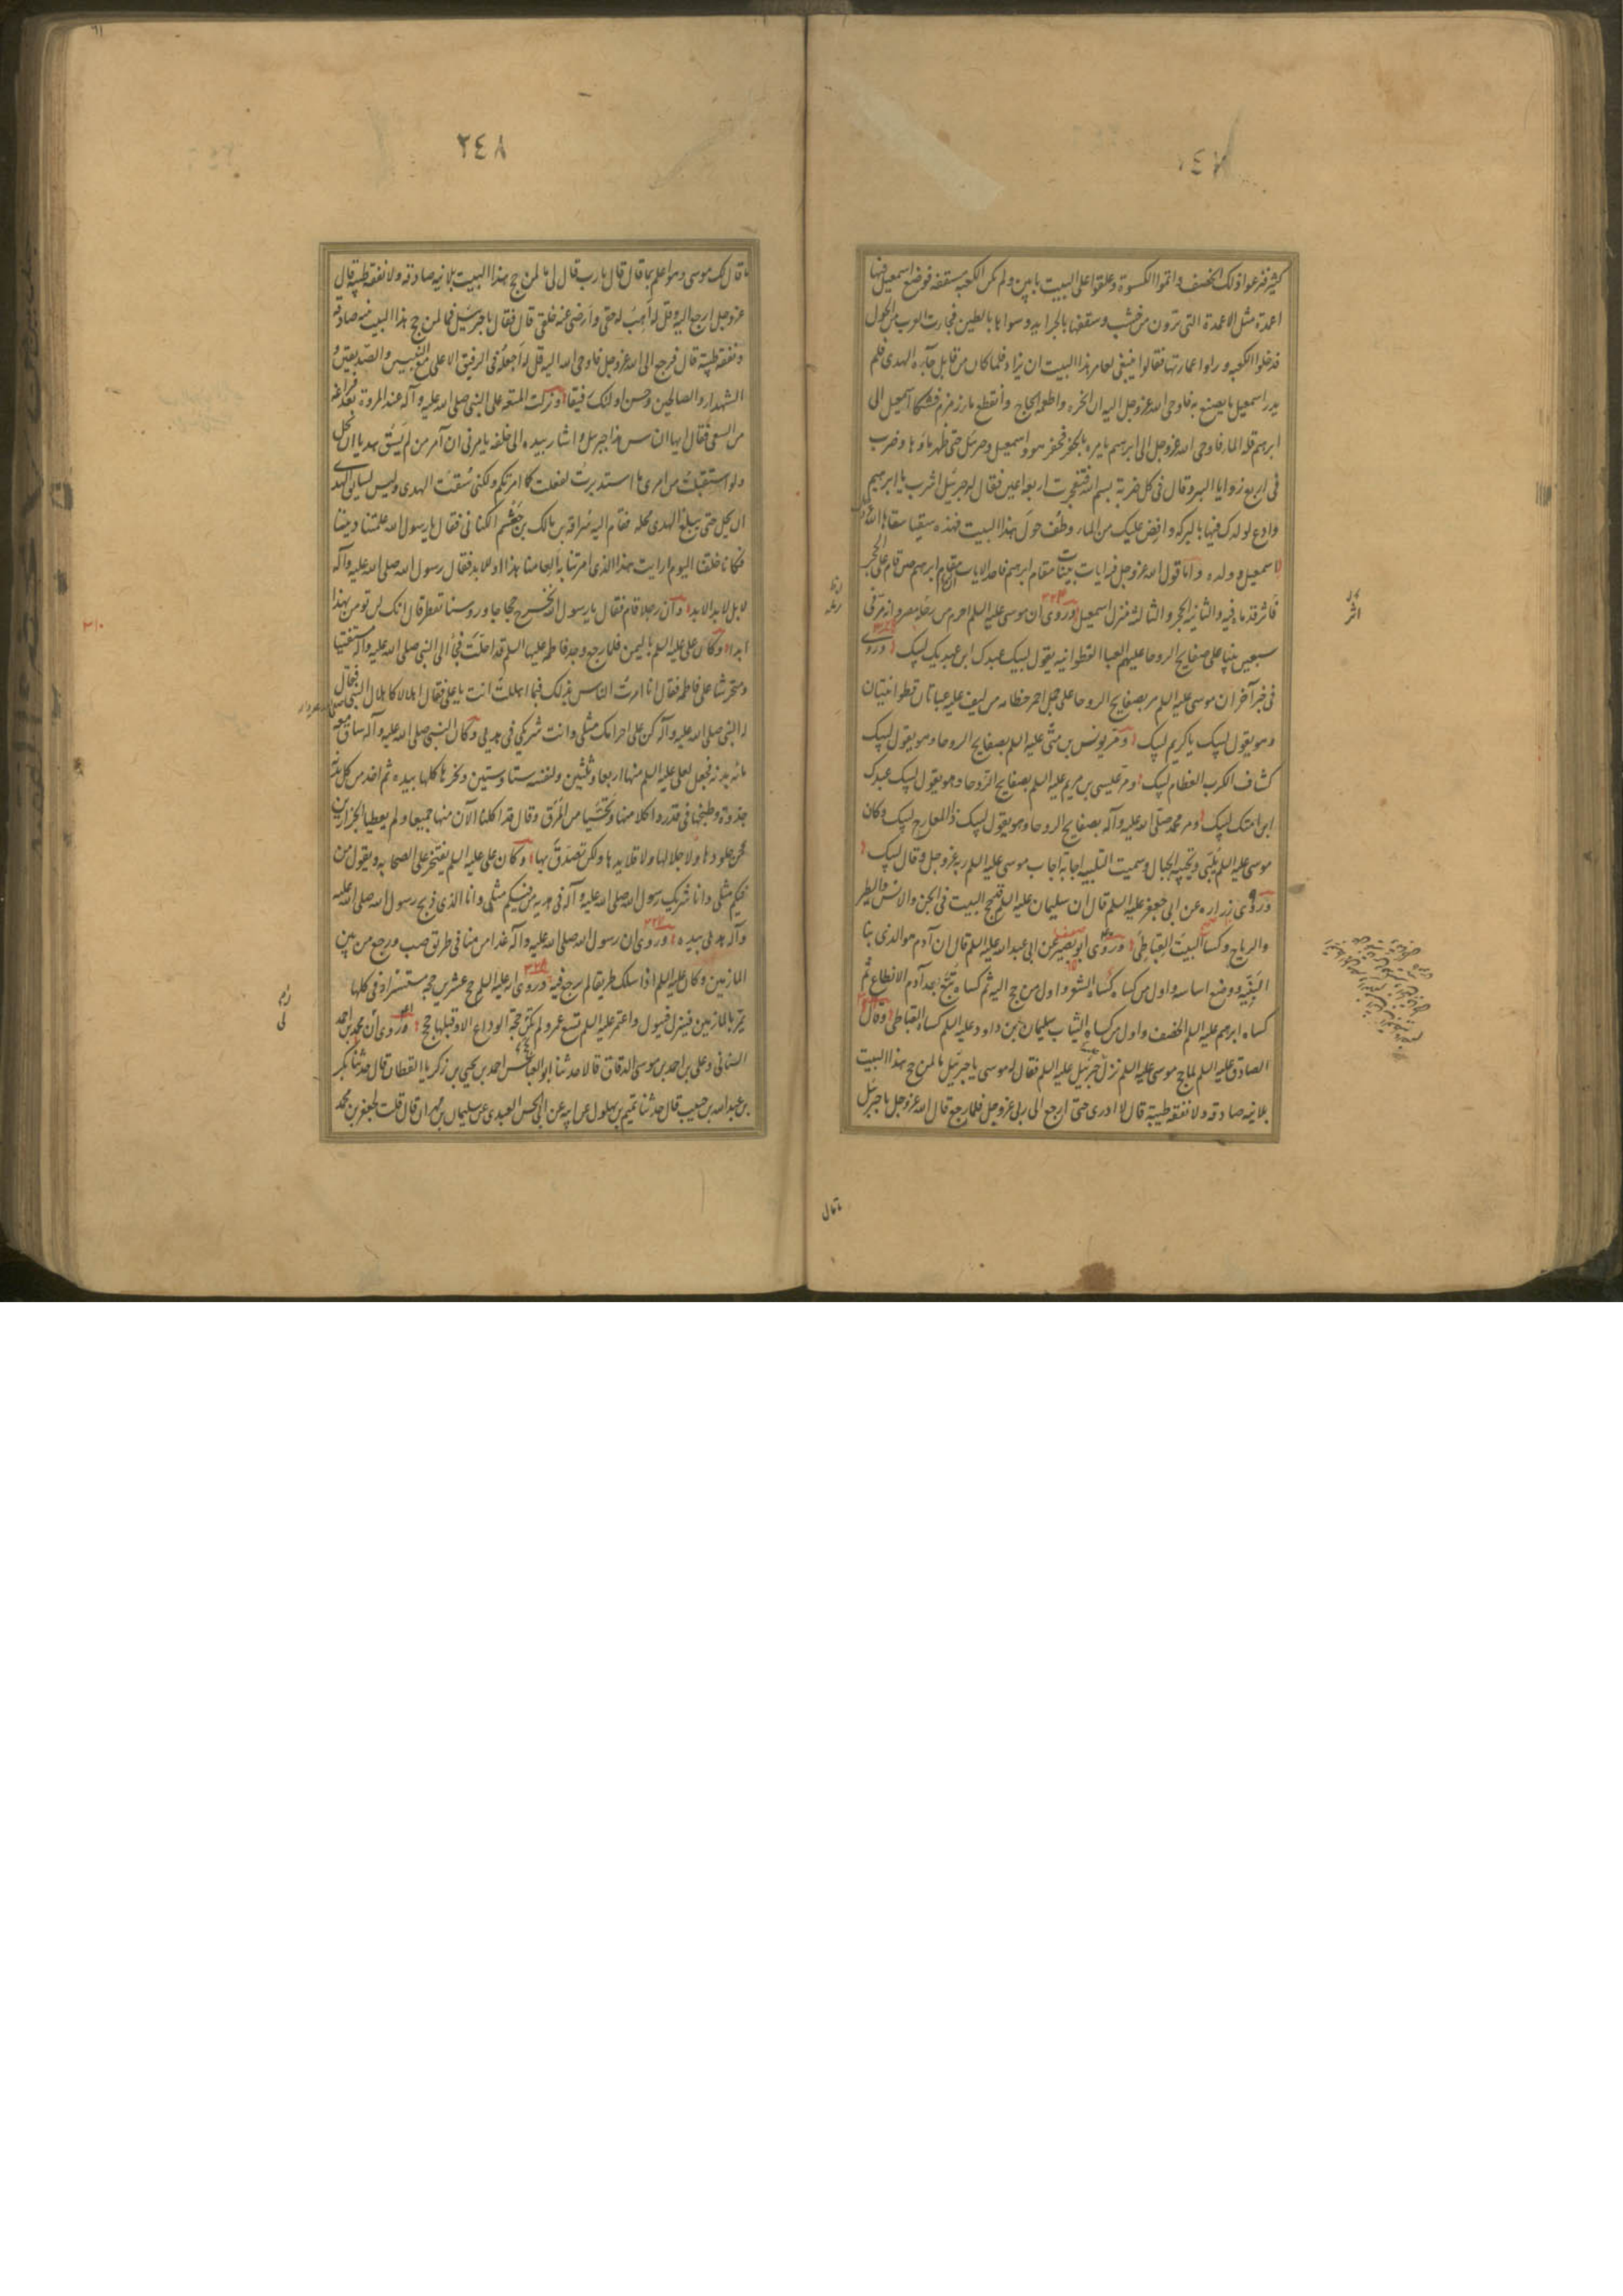 كثير فنزعوا ذلك الخصف واتموا الكسوة وعلقوا على البيت بابين ولم تكن الكعبة مسقفة فوضع اسمعيل فيها
اعمدة مثل الاعمدة التى ترون من خشب وسقفها بالجرايد وسواها بالطين فجاءت العرب من الحول
فدخلوا الكعبه وراوا عمارتها فقالوا ينبغى لعامر هذا البيت ان يزاد فلما كان من قابل جآءه الهدى فلم
يدر اسمعيل ما يصنع به فاوحى الله عز وجل اليه ان انحره واطعمه الحاج وانقطع ماء زمزم فشكا اسمعيل الى
ابرهيم قلة الماء فاوحى الله عز وجل الى ابرهيم يامره بالحفر فحفر هو واسمعيل وجبرئيل حتى ظهر ماؤها وضرب
فى اربع زوايا البير وقال فى كل ضربة بسم الله فتفجرت اربعة اعين فقال له جبرئيل اشرب يا ابرهيم
وادع لولدك فيها بالبركه وافض عليك من الماء وطف حول هذا البيت فهذه سقيا سقاها الله عز وجل
لاسمعيل وولده واما قول الله عز وجل فيه ايات بينات مقام ابرهيم فاحد الايات مقام ابرهيم حين قام على الحجر
فاثر قدماه فيه والثانية الحجر والثالثة منزل اسمعيل وروى ان موسى عليه السلم احرم من رملة مصر وانه مر فى
سبعين نبيا على صفايح الروحا عليهم العبا القطوانيه يقول لبيك عبدك ابن عبديك لبيك وروى
فى خبر آخر ان موسى عليه السلم مر بصفايح الروحا على جمل احمر خطامه من ليف عليه عباتان قطوانيتان
وهو يقول لبيك يا كريم لبيك ومر يونس بن متى عليه السلم بصفايح الروحا وهو يقول لبيك
كشاف الكرب العظام لبيك ومر عيسى بن مريم عليه السلم بصفايح الروحا وهو يقول لبيك عبدك
ابن امتك لبيك ومر محمد صلى الله عليه وآله بصفايح الروحا وهو يقول لبيك ذا المعارج لبيك وكان
موسى عليه السلم يلبى وتجيبه الجبال وسميت التلبيه اجابة اجاب موسى عليه السلم ربه عز وجل وقال لبيك
وروى زراره عن ابى جعفر عليه السلم قال ان سليمان عليه السلم قد حج البيت فى الجن والانس والطير
والرياح وكسا البيت القباطى وروى ابو بصير عن ابى عبد الله عليه السلم قال ان آدم هو الذى بنا
البيت ووضع اساسه واول من كساه كساه الشعر واول من حج اليه ثم كساه تبع بعد آدم الانطاع ثم
كساه ابرهيم عليه السلم الخصف واول من كساه الثياب سليمان بن داود عليه السلم كساه القباطى وقال
الصادق عليه السلم لما حج موسى عليه السلم نزل جبرئيل عليه السلم فقال له موسى يا جبرئيل ما لمن حج هذا البيت
بلا نيه صادقه ولا نفقه طيبة قال لا ادرى حتى ارجع الى ربى عز وجل فلما رجع قال الله عز وجل يا جبرئيل
ما قال
٢٤٨
ما قال لك موسى وهو اعلم بما قال قال يا رب قال لى ما لمن حج هذا البيت بلا نيه صادقه ولا نفقه طيبة قال
عز وجل ارجع اليه وقل له اهب له حقى وارضى عنه خلقى قال فقال يا جبرئيل فما لمن حج هذا البيت بنيه صادقة
ونفقه طيبة قال فرجع الى الله عز وجل فاوحى الله اليه قل له اجعله فى الرفيق الاعلى مع النبيين والصديقين و
الشهداء والصالحين وحسن اولئك رفيقا ونزلت المتعه على النبى صلى الله عليه وآله عند المروة بعد فراغه
من السعى فقال ايها الناس هذا جبرئيل واشار بيده الى خلفه يامرنى ان آمر من لم يسق هديا ان يحل
ولو استقبلت من امرى ما استدبرت لفعلت كما امرتكم ولكنى سقت الهدى وليس لسايق الهدى
ان يحل حتى يبلغ الهدى محله فقام اليه سراقة بن مالك بن جعشم الكنانى فقال يا رسول الله علمتنا ديننا
فكانا خلقنا اليوم ارايت هذا الذى امرتنا به العامنا هذا او للابد فقال رسول الله صلى الله عليه وآله
لا بل لابد الابد وان رجلا قام فقال يا رسول الله نخرج حجاجا وروسنا تقطر قال انك لن تومن بهذا
ابدا وكان على عليه السلم باليمن فلما رجع وجد فاطمه عليها السلم قد احلت فجآء الى النبى صلى الله عليه وآله مستفتيا
ومحرشا على فاطمه فقال انا امرت الناس بذلك فبما اهللت انت يا على فقال اهلالا كاهلال النبى فقال
له النبى صلى الله عليه وآله كن على احرامك مثلى وانت شريكى فى هديى وكان النبى صلى الله عليه وآله ساق معه
مائه بدنه فجعل لعلى عليه السلم منها اربعا وثلثين ولنفسه ستا وستين ونحرها كلها بيده ثم اخذ من كل بدنة
جذوة وطبخها فى قدر واكلا منها وتحسيا من المرق وقال قد اكلنا الآن منها جميعا ولم يعطيا الجزارين
جلودها ولا جلالها ولا قلايدها ولكن تصدق بها وكان على عليه السلم يفتخر على الصحابه ويقول من
فيكم مثلى وانا شريك رسول الله صلى الله عليه وآله فى هديه من فيكم مثلى وانا الذى ذبح رسول الله صلى الله عليه
وآله هديى بيده وروى ان رسول الله صلى الله عليه وآله غدا من منا فى طريق ضب ورجع من بين
المازمين وكان عليه السلم اذا سلك طريقا لم يرجع فيه وروى انه عليه السلم حج عشرين حجه مستسرا وفى كلها
يمر بالمازمين فينزل فيبول واعتمر عليه السلم تسع عمر ولم يكن حجة الوداع الا وقبلها حج وروى ان محمد بن احمد
السنانى وعلى بن احمد بن موسى الدقاق قالا حدثنا ابو العباس احمد بن يحيى بن زكريا القطان قال حدثنا بكر
بن عبد الله بن حبيب قال حدثنا تميم بن بهلول عن ابيه عن ابى الحسن العبدى عن سليمان بن مهران قال قلت لجعفر بن محمد
٣١٠